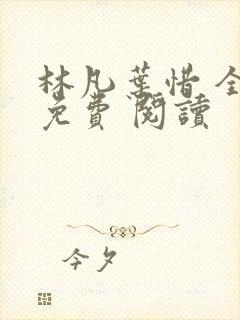 林凡葉惜 全
免費 閱讀
今夕